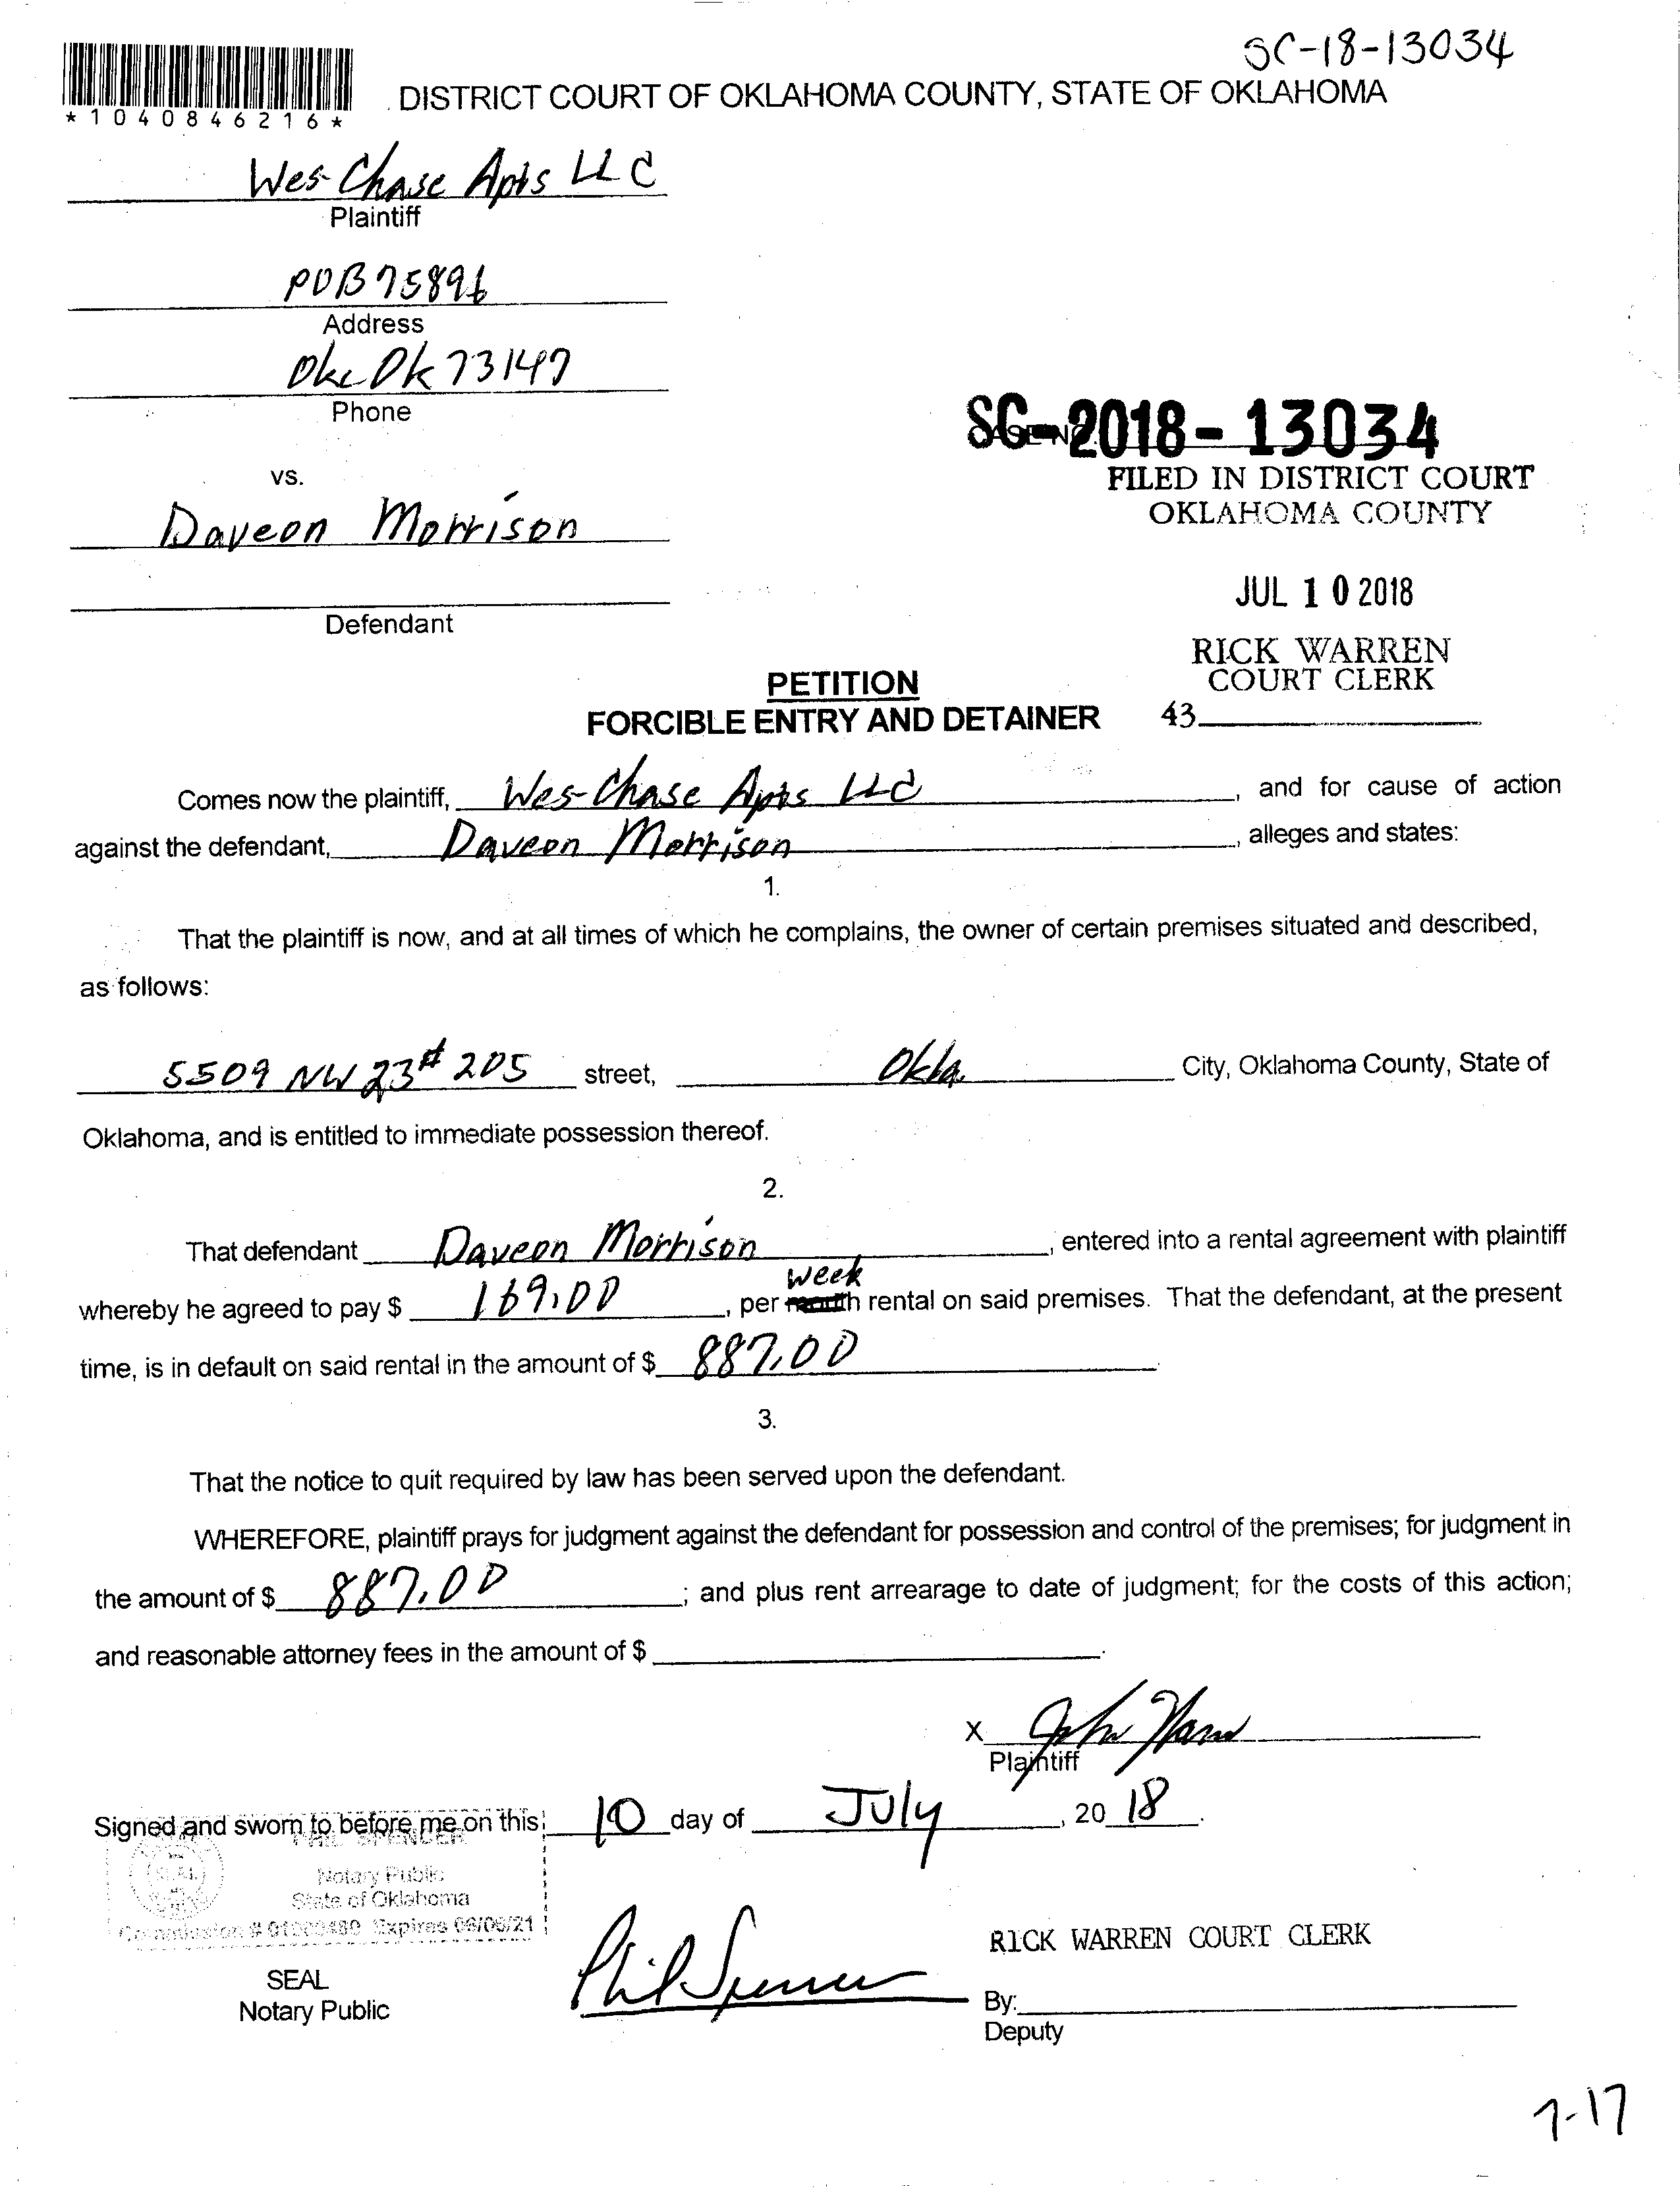 SC-18-13034
*1040846216*
DISTRICT COURT OF OKLAHOMA COUNTY, STATE OF OKLAHOMA
Wes-Chase Apts LLC
Plaintiff
POB 75896
Address
Okc Ok 73147
Phone
SC-2018-13034
FILED IN DISTRICT COURT
OKLAHOMA COUNTY
vs.
Daveon Morrison
JUL 10 2018
Defendant
RICK WARREN
COURT CLERK
43
PETITION
FORCIBLE ENTRY AND DETAINER
Comes now the plaintiff, Wes-Chase Apts LLC, and for cause of action
against the defendant, Daveon Morrison, alleges and states:
1.
That the plaintiff is now, and at all times of which he complains, the owner of certain premises situated and described,
as follows:
5509 NW 23 # 205 street, Okla. City, Oklahoma County, State of
Oklahoma, and is entitled to immediate possession thereof.
2.
That defendant Daveon Morrison, entered into a rental agreement with plaintiff
week
whereby he agreed to pay $ 169.00, per month rental on said premises. That the defendant, at the present
time, is in default on said rental in the amount of $ 887.00.
3.
That the notice to quit required by law has been served upon the defendant.
WHEREFORE, plaintiff prays for judgment against the defendant for possession and control of the premises; for judgment in
the amount of $ 887.00; and plus rent arrearage to date of judgment; for the costs of this action;
and reasonable attorney fees in the amount of $ .
X John
Plaintiff
Signed and sworn to before me on this 10 day of July, 20 18.
PHIL SPENCER
SEAL
Notary Public
State of Oklahoma
Commission # Expires 06/06/21
Phil Spencer
RICK WARREN COURT CLERK
SEAL
Notary Public
By:
Deputy
7-17